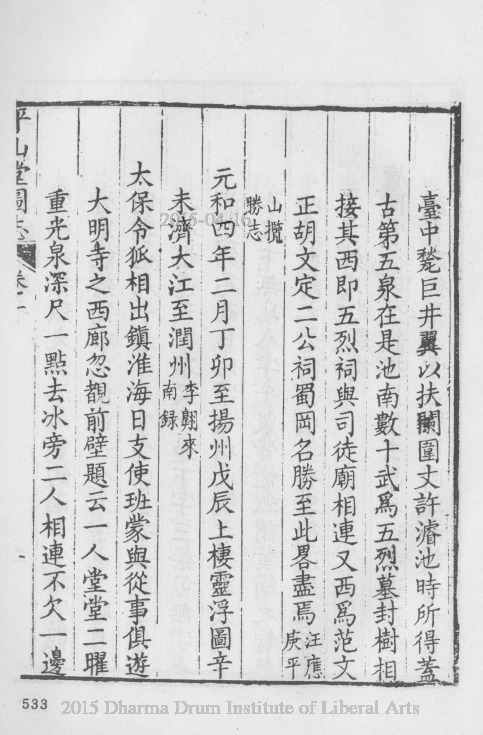 臺中甃巨井翼以扶闌圍丈許濬池時所得蓋
古第五泉在是池南數十武爲五烈墓封樹相
接其西即五烈祠與司徒廟相連又西爲范文
正胡文定二公祠蜀岡名勝至此畧盡焉汪應庚平
山攬勝志
元和四年二月丁卯至揚州戊辰上棲靈浮圖辛
未濟大江至潤州李翺來南錄
太保令狐相出鎮淮海日支使班蒙與從事俱遊
大明寺之西廊忽覩前壁題云一人堂堂二曜
重光泉深尺一點去冰旁二人相連不欠一邊
平山堂圖志 卷十
2015-04-16
533
2015 Dharma Drum Institute of Liberal Arts